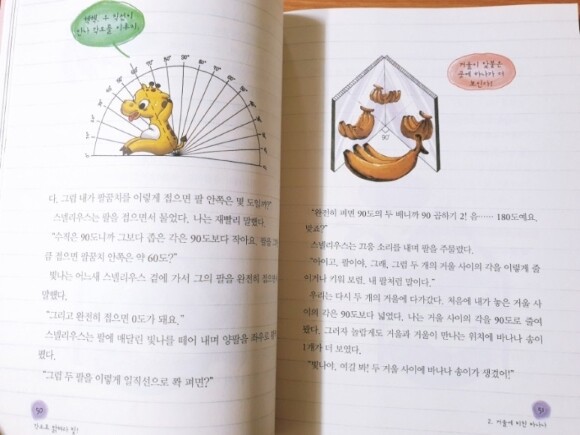 다. 그럼 내가 팔꿈치를 이렇게 접으면 팔 안쪽은 몇 도일까?"
스넬리우스는 팔을 접으면서 물었다. 나는 재빨리 말했다.
"수직은 90도니까 그보다 좁은 각은 90도보다 작아요. 팔을
금 접으면 팔꿈치 안쪽은 약 60도?"
빛나는 어느새 스넬리우스 곁에 가서 그의 팔을 완전히 접으면서
말했다.
"그리고 완전히 접으면 0도가 돼요."
스넬리우스는 팔에 매달린 빛나를 떼어 내며 양팔을 좌우로
폈다.
"그럼 두 팔을 이렇게 일직선으로 쫙 펴면?"
50
거울이 맞붙은
곳에 바나나가 더
보인다!
90°
"완전히 펴면 90도의 두 배니까 90 곱하기 2! 음…… 180도예요.
맞죠?"
스넬리우스는 끄응 소리를 내며 팔을 주물렀다.
"아이고, 팔이야. 그래, 그럼 두 개의 거울 사이의 각을 이렇게 줄
이거나 키워 보렴. 내 팔처럼 말이다."
우리는 다시 두 개의 거울에 다가갔다. 처음에 내가 놓은 거울 사
이의 각은 90도보다 넓었다. 나는 거울 사이의 각을 90도로 줄여
봤다. 그러자 놀랍게도 거울과 거울이 만나는 위치에 바나나 송이
1개가 더 보였다.
"빛나야, 여길 봐! 두 거울 사이에 바나나 송이가 생겼어!"
51
2. 거울에 비친 바나나